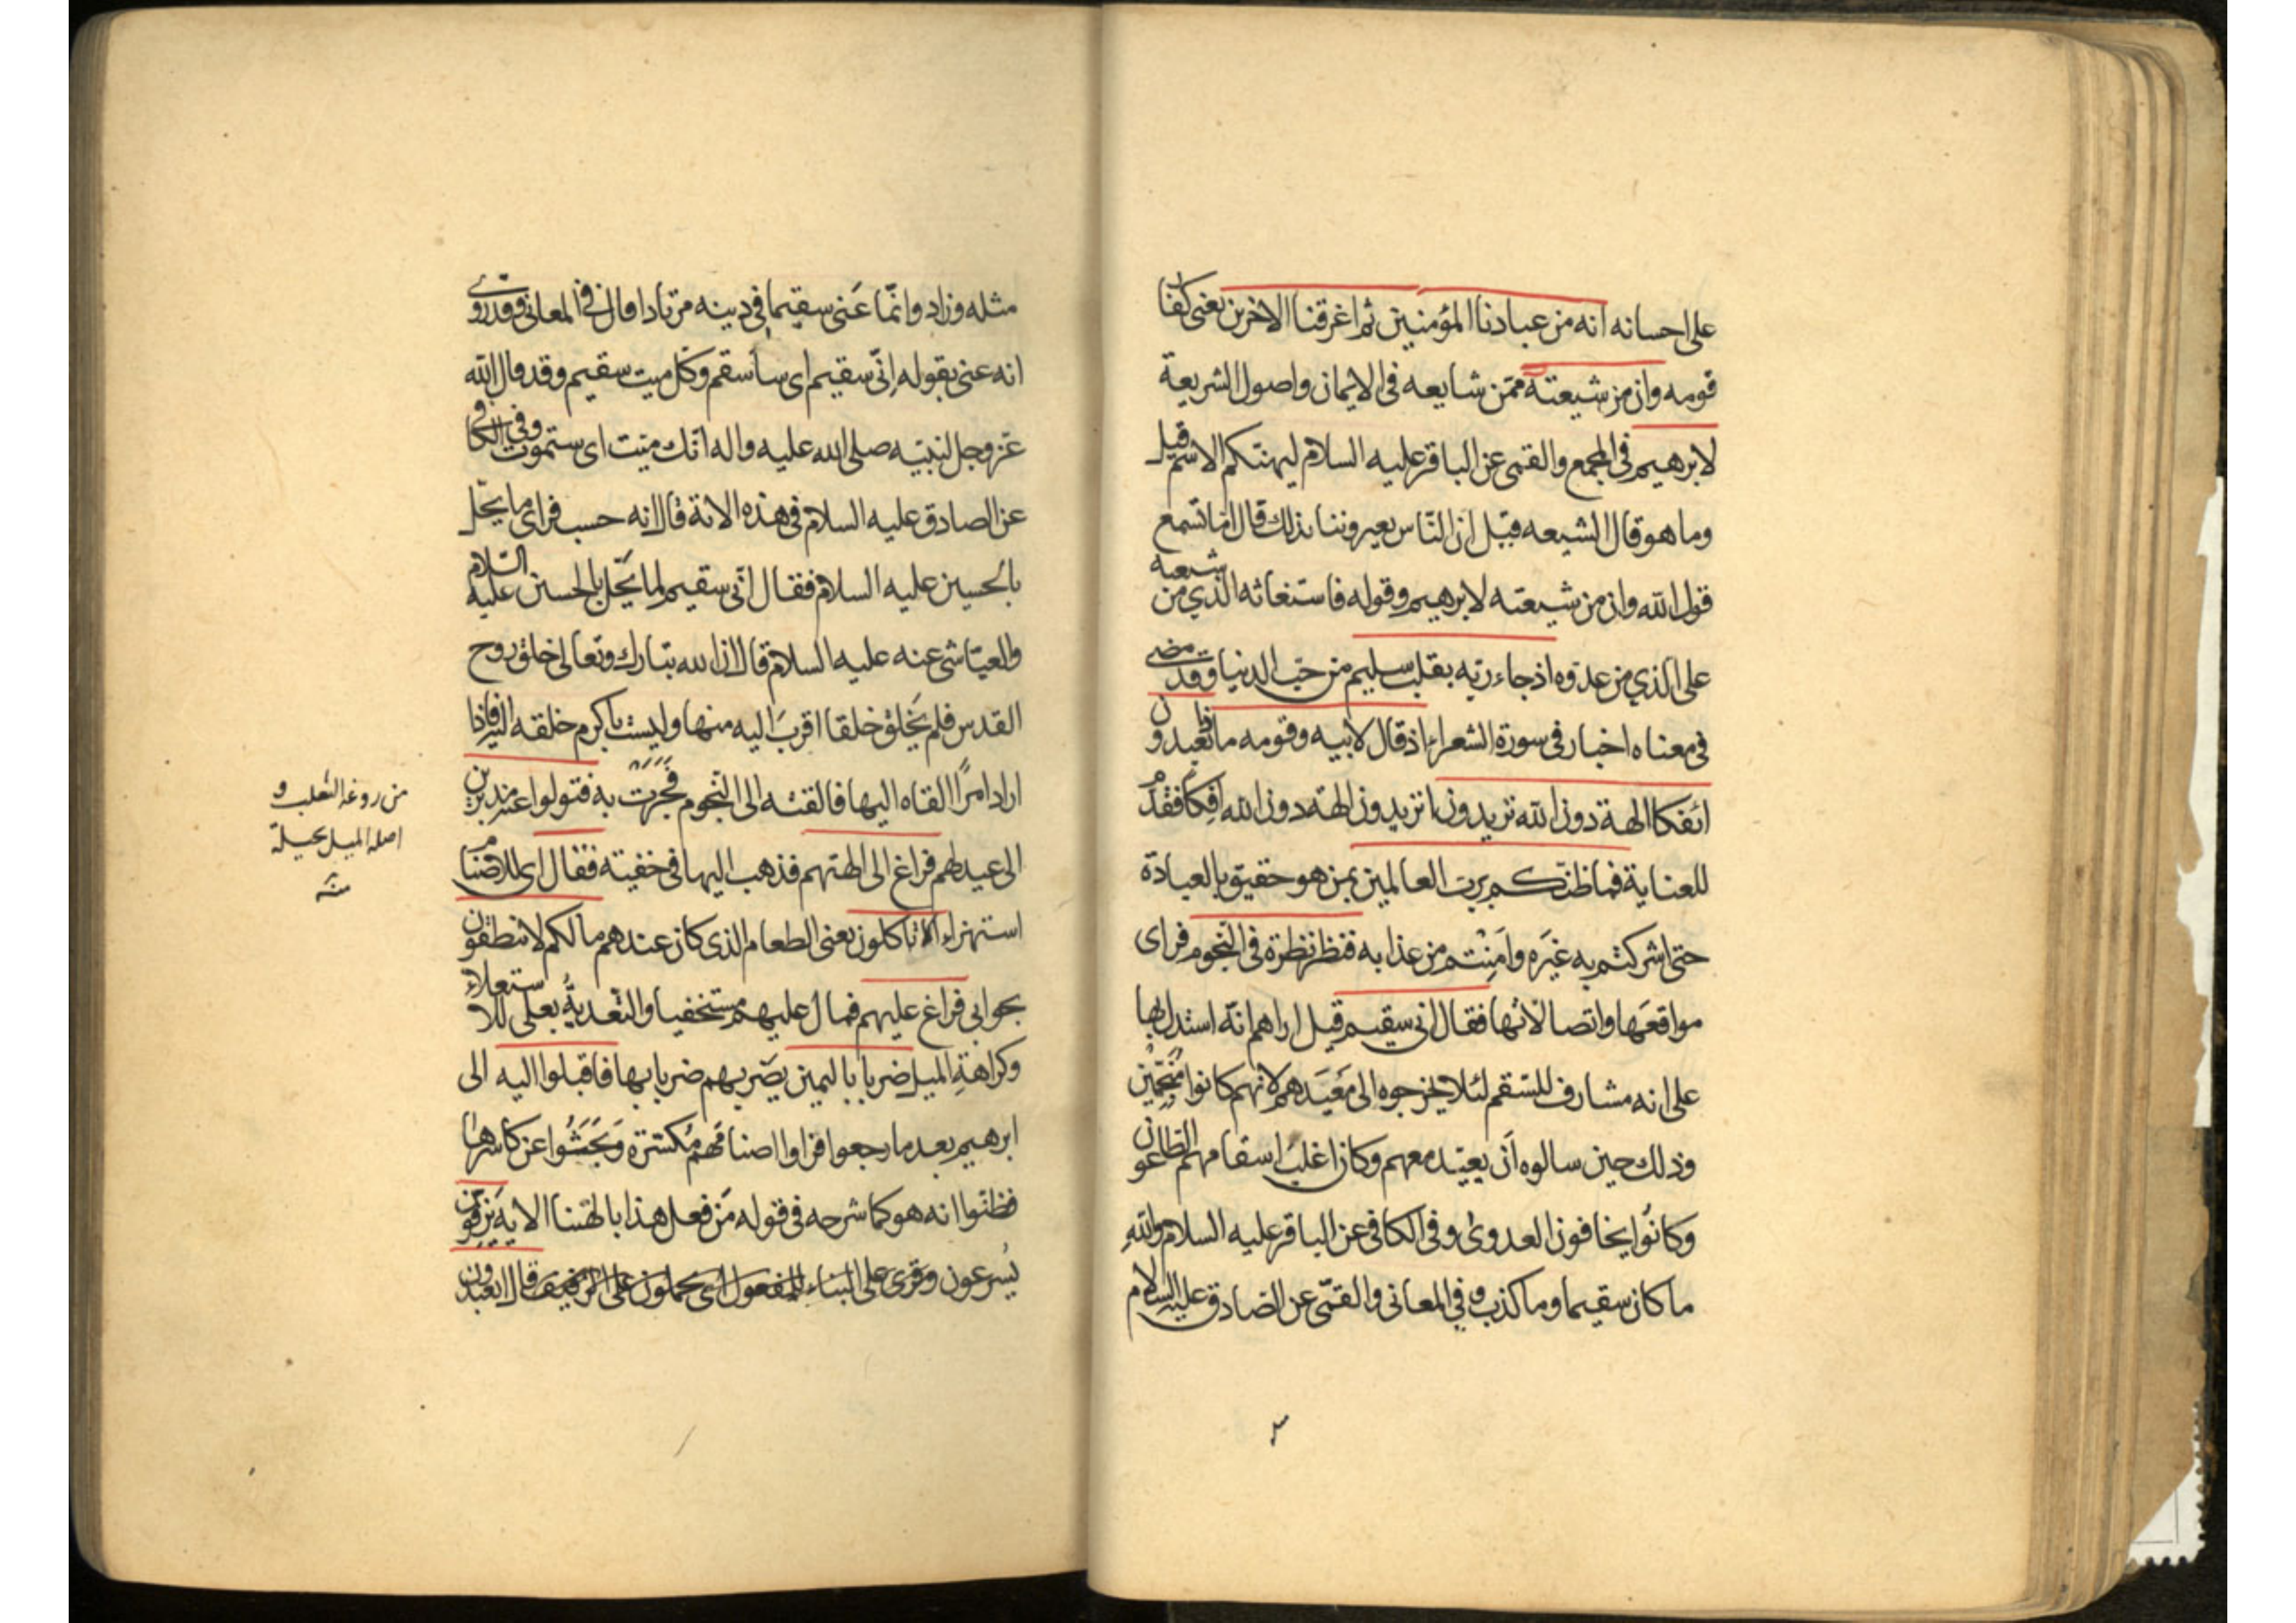 على احسانه انه من عبادنا المؤمنين ثم اغرقنا الاخرين يعنى كفار
قومه وان من شيعته ممّن شايعه فى الايمان واصول الشريعة
لابرهيم فى المجمع والقمى عن الباقر عليه السلام ليهنئكم الاسم قيل
وما هو قال الشيعه قيل ان النّاس يعيروننا بذلك قال اما تسمع
قول الله وان من شيعته لابرهيم وقوله فاستغاثه الذي من شيعته
على الذي من عدوه اذ جاء ربّه بقلب سليم من حبّ الدنيا وقد مضى
فى معناه اخبار فى سورة الشعراء اذ قال لابيه وقومه ماذا تعبدون
ائفكا الهة دون الله تريدون اتريدون الهة دون الله افكا فقدم
للعناية فما ظنّكم بربّ العالمين بمن هو حقيق بالعبادة
حتى اشركتم به غيَره وامَنِتُم من عذابه فنظر نظرة فى النّجوم فراى
مواقعَها واتصالاتها فقال انى سقيم قيل اراهم انّه استدل بها
على انه مشارف للسّقم لئلا يخرجوه الى مَعيَدهم لانهم كانوا منجّمين
وذلك حين سالوه اَن يعيّد معهم وكان اغلبُ اسقامهم الطاعون
وكانُوا يخافون العدوىٰ وفى الكافى عن الباقر عليه السلام والله
ما كان سقيما وما كذب وفي المعانى والقمّى عن الصّادق عليه السلام
مثله وزاد وانّما عَنى سقيما فى دينه مرتادا وقال فى المعانى وقد روى
انه عنى بقوله اِنّى سقيم اى ساَسقم وكل ميت سقيم وقد قال الله
عزوجل لنبيّه صلى الله عليه واله انّك ميّت اى ستموت وفى الكافى
عن الصادق عليه السلام فى هذه الاية قال انه حسب فراى ما يحلّ
بالحسين عليه السلام فقال انّى سقيم لما يَحلّ بالحسين عليه السّلام
والعيّاشى عنه عليه السلام قال ان الله تبارك وتعالى خلق روح
القدس فلم يَخلق خلقا اقربَ اليه منها وليست باكرم خلقه اليه فاذا
اراد امرًا القاه اليها فالقته الى النّجوم فَجَرَتْ به فتولوا عنه مدبرين
الى عيدهم فراغ الى الهتهم فذهب اليها فى خفية فقال اى للاصنام
استهزاء الا تاكلون يعنى الطعام الذى كان عندهم ما لكم لا تنطقون
بجوابى فراغ عليهم فمال عليهم مستخفيا والتّعديةُ بعلى للاستعلاء
وكراهةِ الميل ضربا باليمين يضربهم ضربا بها فاقبلوا اليه الى
ابرهيم بعد ما رجعوا فراوا اصنامَهم مُكسّرة وَبَحَثُوا عن كاسرها
فظنّوا انه هو كما شرحه فى قوله مَن فعل هذا بالهتنا الاية يَزِفّون
يُسرعون وقرئ على البناء للمفعول اى يحملون على الزفيف قال اتعبدون
من روغة الثعلب و
اصله الميل بحيلة
منه